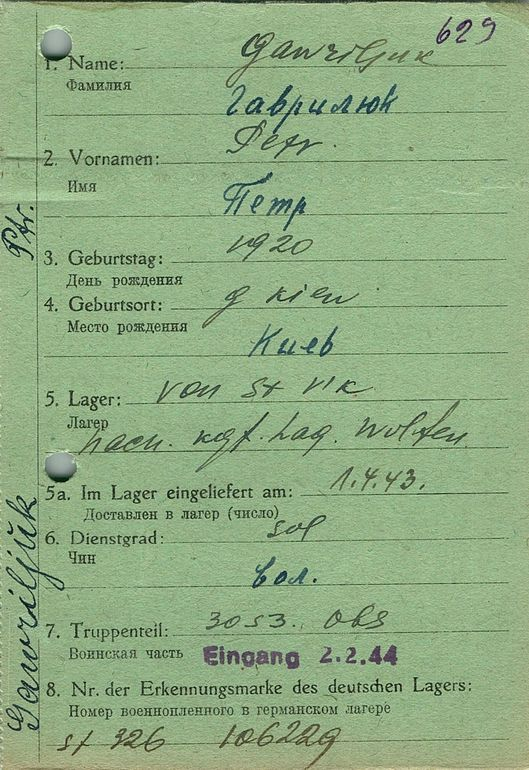 629
1. Name: Gawriljuk
Фамилия
Гаврилюк
2. Vornamen: Petr.
Имя
Петр
3. Geburtstag: 1920
День рождения
4. Geburtsort: g Kiew
Место рождения
Киев
5. Lager: von St VI K
Лагерь
nach. kgf. Lag. Wolfen.
5a. Im Lager eingeliefert am: 1.4.43.
Доставлен в лагерь (число)
6. Dienstgrad: sol
Чин
7. Truppenteil: 3053. Obs
Воинская часть Eingang 2.2.44
8. Nr. der Erkennungsmarke des deutschen Lagers:
Номер военнопленного в германском лагере
St 326 106229
Ptr.
Gawriljuk